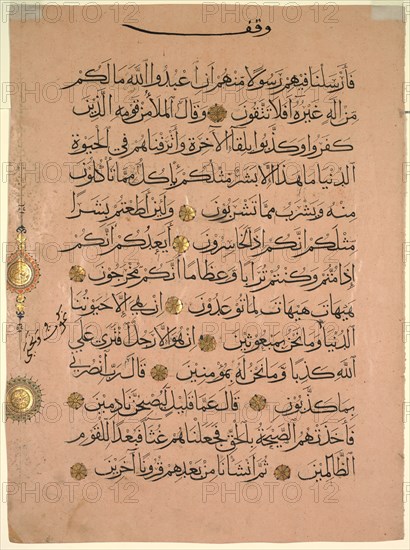 وقف
فأرسلنا فيهم رسولا منهم أن اعبدوا الله مالكم
من إله غيره أفلا تتقون وقال الملأ من قومه الذين
كفروا وكذبوا بلقاء الآخرة وأترفناهم في الحيوة
الدنيا ما هذا إلا بشر مثلكم يأكل مما تأكلون
منه ويشرب مما تشربون ولئن أطعتم بشرا
مثلكم إنكم إذا لخاسرون أيعدكم أنكم
إذا متم وكنتم ترابا وعظاما أنكم مخرجون
هيهات هيهات لما توعدون إن هي إلا حيوتنا
الدنيا وما نحن بمبعوثين إن هو إلا رجل افترى على
نموت ونحيا
الله كذبا وما نحن له بمؤمنين قال رب انصرني
بما كذبون قال عما قليل ليصبحن نادمين
فأخذتهم الصيحة بالحق فجعلناهم غثاء فبعدا للقوم
الظالمين ثم أنشأنا من بعدهم قرونا آخرين
PHOTO 12